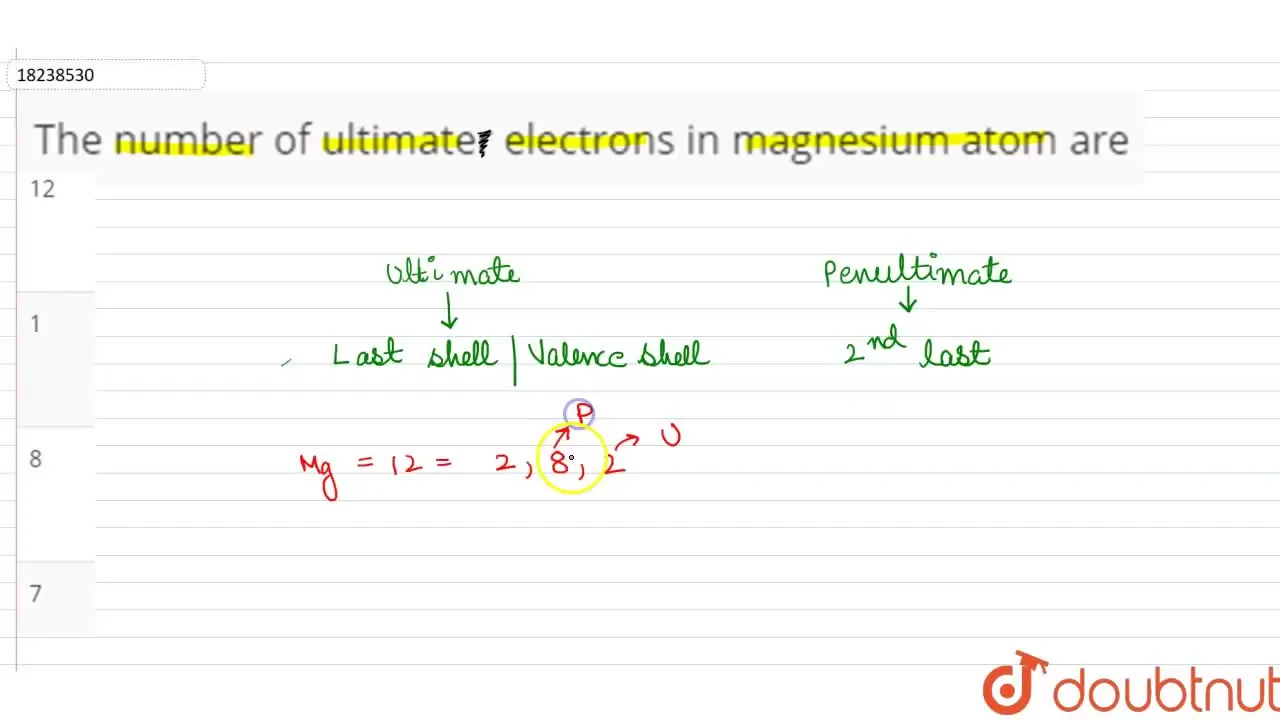 18238530
The number of ultimate, electrons in magnesium atom are
12
1
8
7
Ultimate
Penultimate
Last shell | Valence shell
2nd last
P
U
Mg = 12 = 2, 8, 2
doubtnut